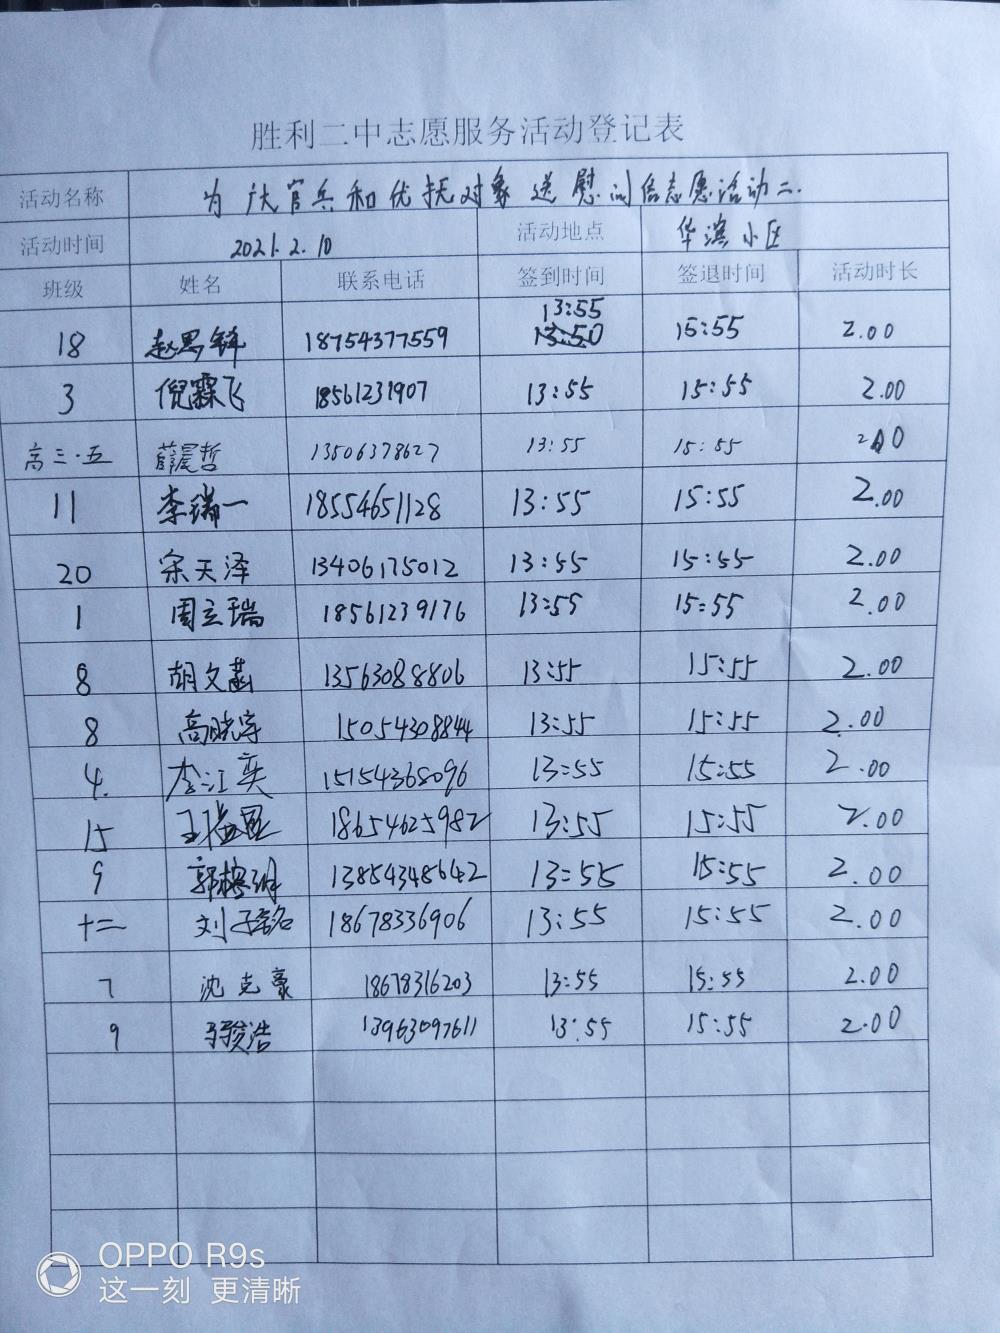 胜利二中志愿服务活动登记表
活动名称 为广大官兵和优抚对象送慰问信志愿活动二.
活动时间 2021.2.10 活动地点 华滨小区
班级 姓名 联系电话 签到时间 签退时间 活动时长
13:55
18 赵思锋 18754377559 13:50 15:55 2.00
3 倪霖飞 18561231907 13:55 15:55 2.00
高三·五 薛晨哲 13506378627 13:55 15:55 2.00
11 李瑞一 18554651128 13:55 15:55 2.00
20 宋天泽 13406175012 13:55 15:55 2.00
1 周立瑞 18561239176 13:55 15:55 2.00
8 胡文菡 13563088806 13:55 15:55 2.00
8 高晓宇 15054308844 13:55 15:55 2.00
4. 李江奕 15154368096 13:55 15:55 2.00
15 王 18654625982 13:55 15:55 2.00
9 郭 13854348642 13:55 15:55 2.00
十二 刘子铭 18678336906 13:55 15:55 2.00
7 沈克豪 18678316203 13:55 15:55 2.00
9 骏浩 13963097611 13:55 15:55 2.00
OPPO R9s
这一刻 更清晰